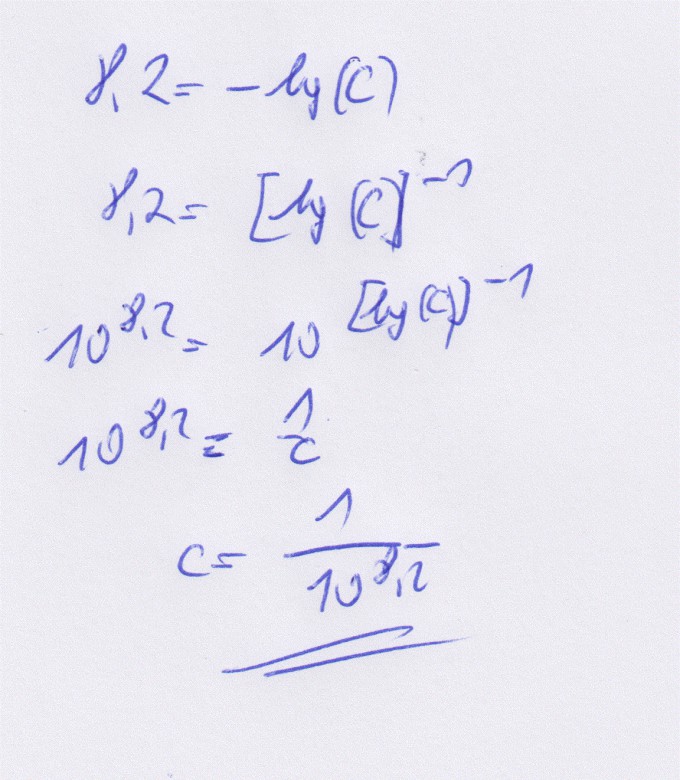 8,2 = - lg(c)
8,2 = [lg(c)]^-1
10^8,2 = 10^[lg(c)]^-1
10^8,2 = 1/c
c = 1/10^8,2